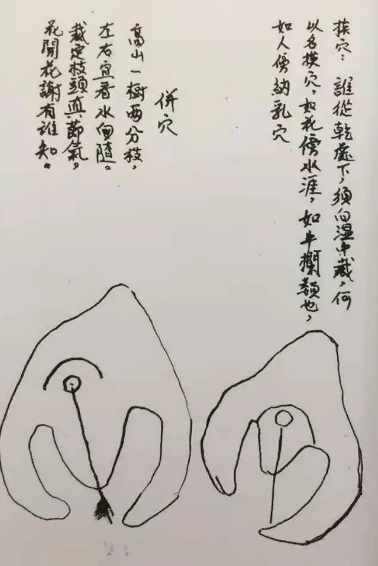 挨穴：誰從乾處下，須向濕中裁，何
以名挨穴，如花傍水涯，如牛攔類也，
如人傍幼乳穴
併穴
高山一樹兩分枝，
左右宜看水回隨。
裁定枝頭真節氣，
花開花謝有誰知。